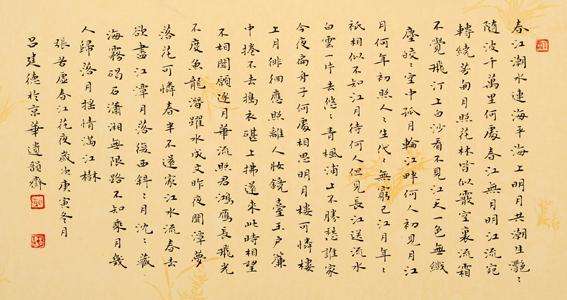 春江潮水連海平海上明月共潮生灩〻
隨波千萬里何處春江無月明江流宛
轉繞芳甸月照花林皆似霰空裏流霜
不覺飛汀上白沙看不見江天一色無纖
塵皎〻空中孤月輪江畔何人初見月江
月何年初照人人〻生代〻無窮已江月年〻
祇相似不知江月待何人但見長江送流水
白雲一片去悠〻青楓浦上不勝愁誰家
今夜扁舟子何處相思明月樓可憐樓
上月徘徊應照離人妝鏡臺玉戶簾
中捲不去擣衣砧上拂還來此時相望
不相聞願逐月華流照君鴻雁長飛光
不度魚龍潛躍水成文昨夜閑潭夢
落花可憐春半不還家江水流春去
欲盡江潭月落復西斜〻月沉〻藏
海霧碣石瀟湘無限路不知乘月幾
人歸落月搖情滿江樹
張若虛春江花月夜歲次庚寅冬月
呂建德於京華韻齋